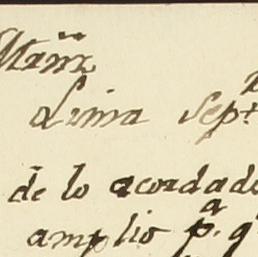 Lima Sept
de lo acordado
amplio p.a q